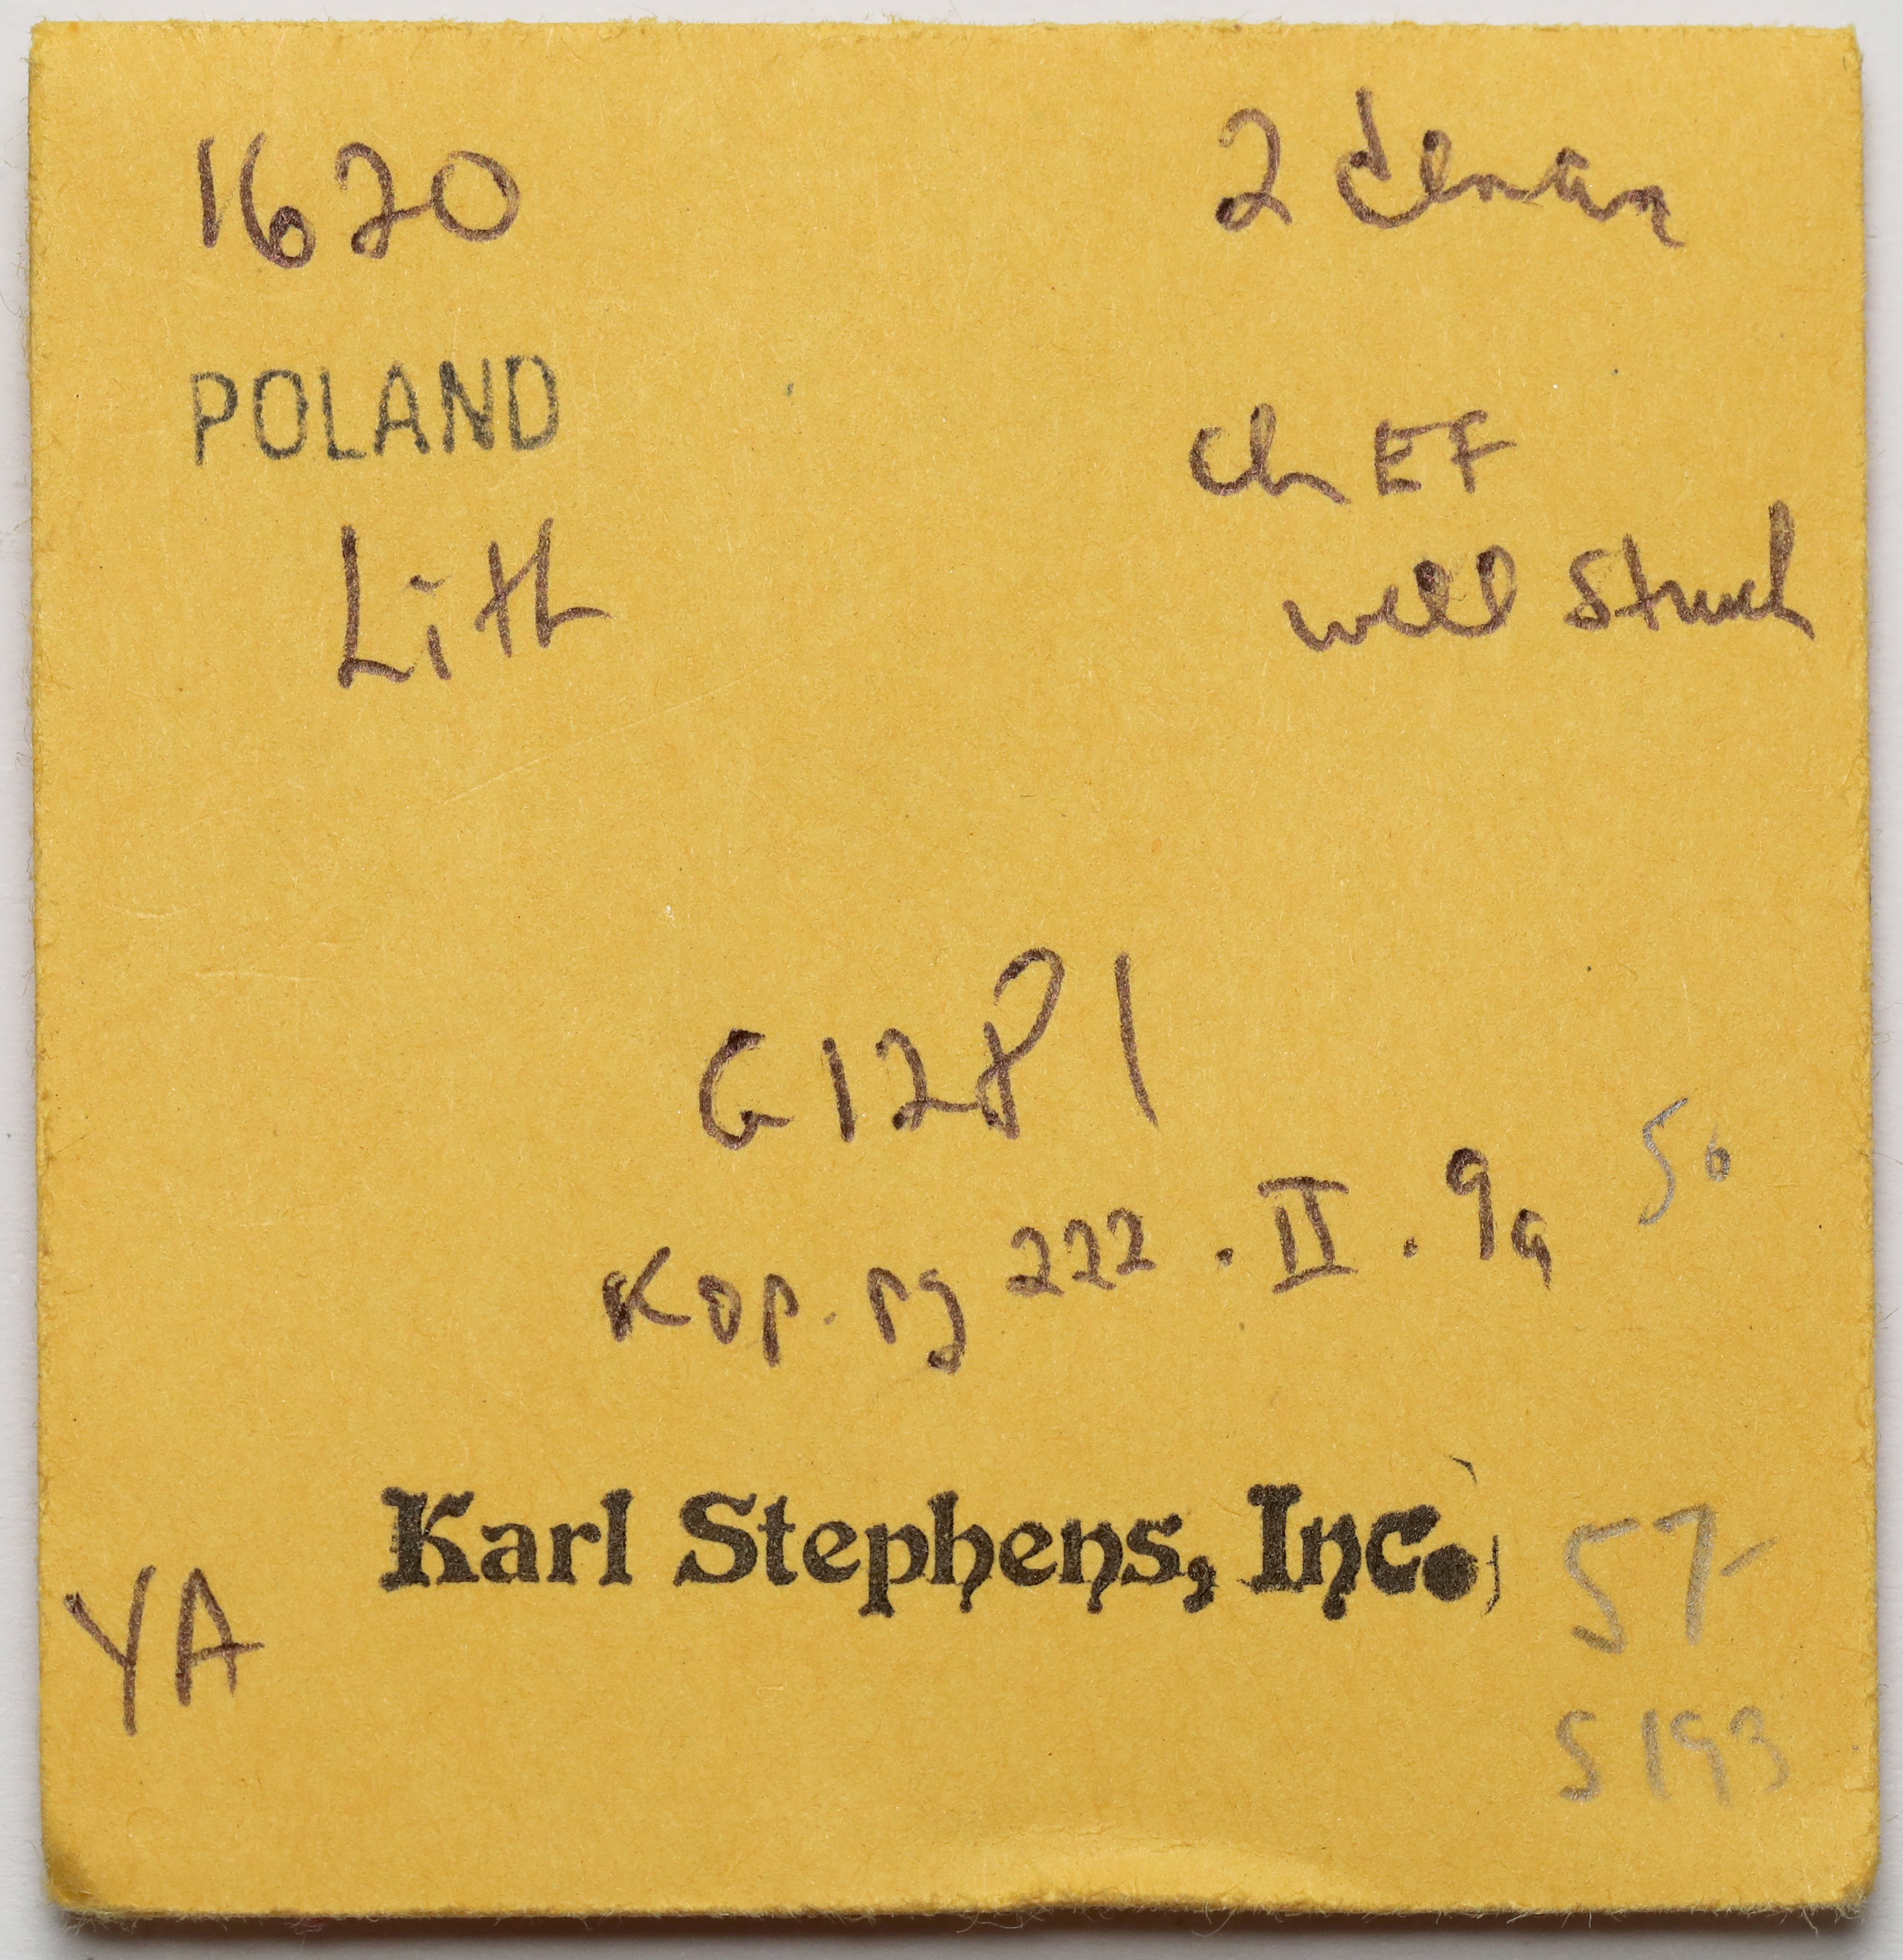 1620
2 denar
POLAND
Ch EF
Lith
well struck
G1281
Kop. pg 222 . II . 9a
50
Karl Stephens, Inc.
57-
YA
S 193